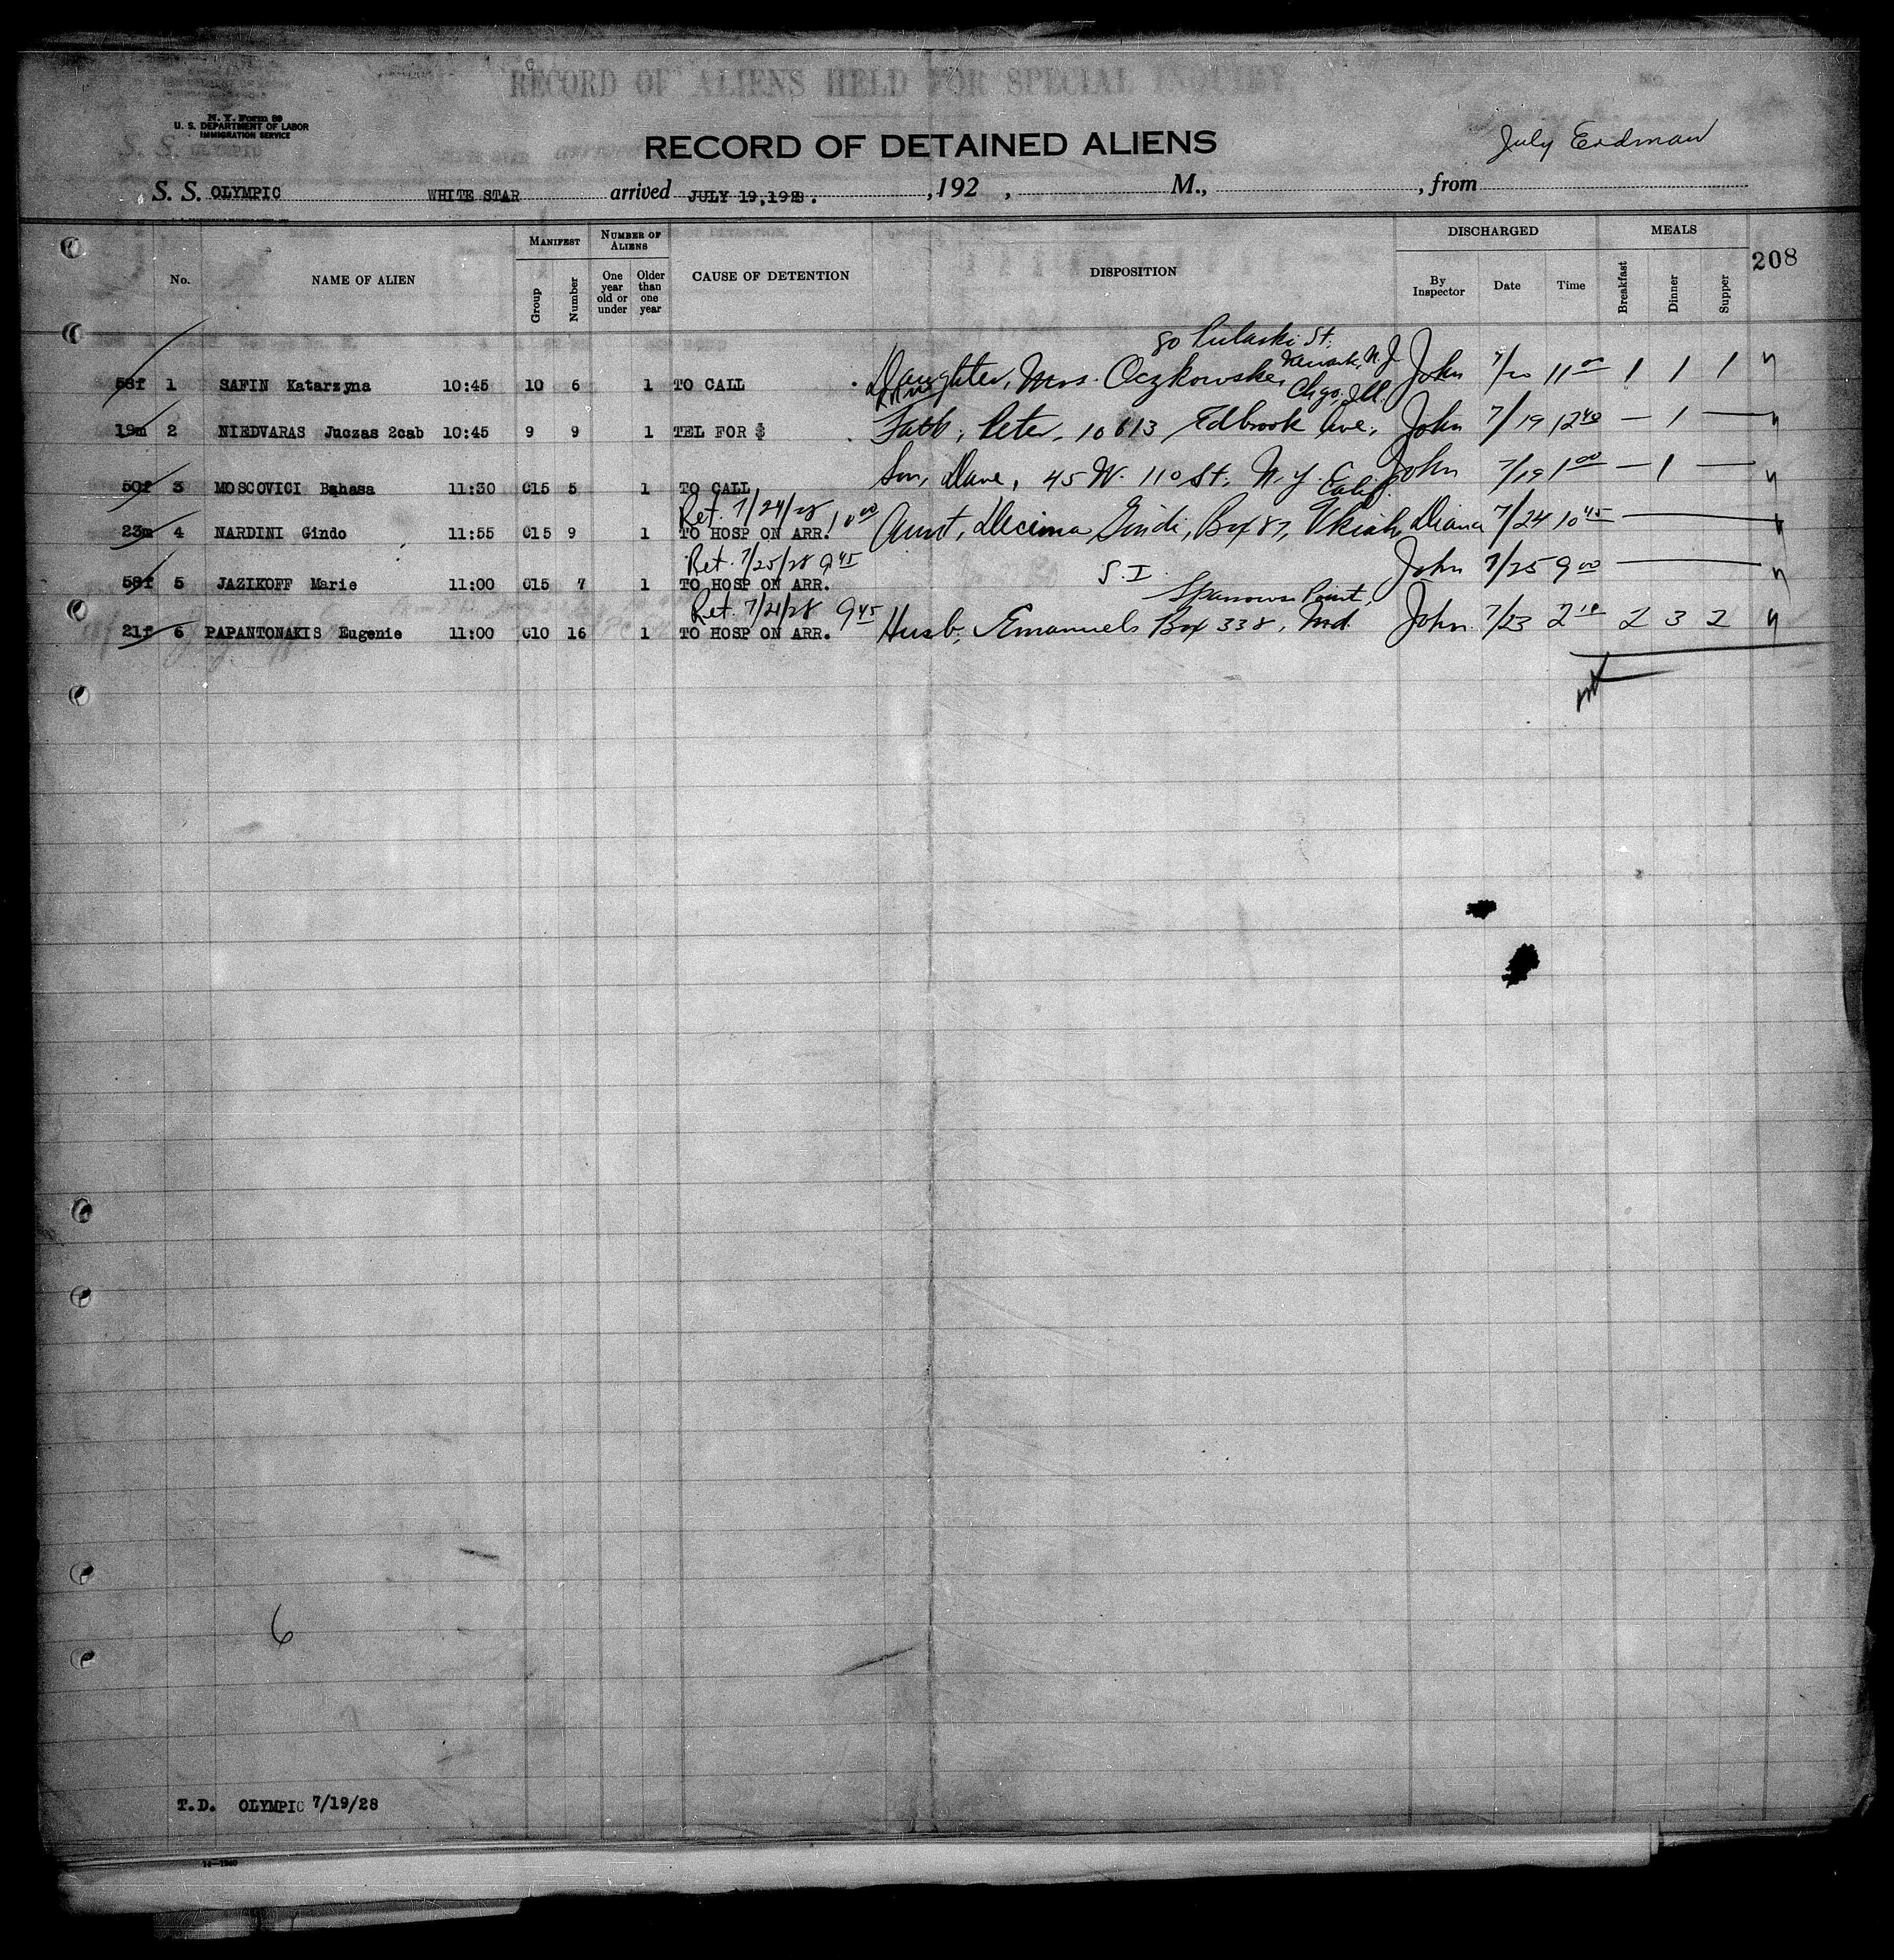 RECORD OF ALIENS HELD FOR SPECIAL INQUIRY
N. Y. Form 89
U. S. DEPARTMENT OF LABOR
IMMIGRATION SERVICE
RECORD OF DETAINED ALIENS
July Erdman
S. S. OLYMPIC WHITE STAR arrived JULY 19,1928. ,192 , M., , from
No. NAME OF ALIEN MANIFEST Group Number NUMBER OF ALIENS One year old or under Older than one year CAUSE OF DETENTION DISPOSITION DISCHARGED By Inspector Date Time MEALS Breakfast Dinner Supper 208
80 Pulaski St.
Newark, N. J.
58f 1 SAFIN Katarzyna 10:45 10 6 1 TO CALL Daughter, Mrs. Oczkowske, John 7/20 11 00 1 1 1
Chgo, Ill.
19m 2 NIEDVARAS Juozas 2cab 10:45 9 9 1 TEL FOR $ Fath, Peter, 10613 Edbrook Ave, John 7/19 12 40 — 1 —
50f 3 MOSCOVICI Bahasa 11:30 C15 5 1 TO CALL Son, Dave, 45 W. 110 St. N. Y. John 7/19 1 00 — 1 —
Ret. 7/24/28 10 00 Calif.
23m 4 NARDINI Gindo 11:55 C15 9 1 TO HOSP ON ARR. Aunt, Decima Gindi, Box 87, Ukiah, Diana 7/24 10 45 —
Ret. 7/25/28 9 45
58f 5 JAZIKOFF Marie 11:00 C15 7 1 TO HOSP ON ARR. S. I. John 7/25 9 00 —
Ret. 7/21/28 9 45 Sparrows Point,
21f 6 PAPANTONAKIS Eugenie 11:00 C10 16 1 TO HOSP ON ARR. Husb, Emanuels Box 338, Md. John 7/23 2 10 2 3 2
6
T.D. OLYMPIC 7/19/28
14—1940